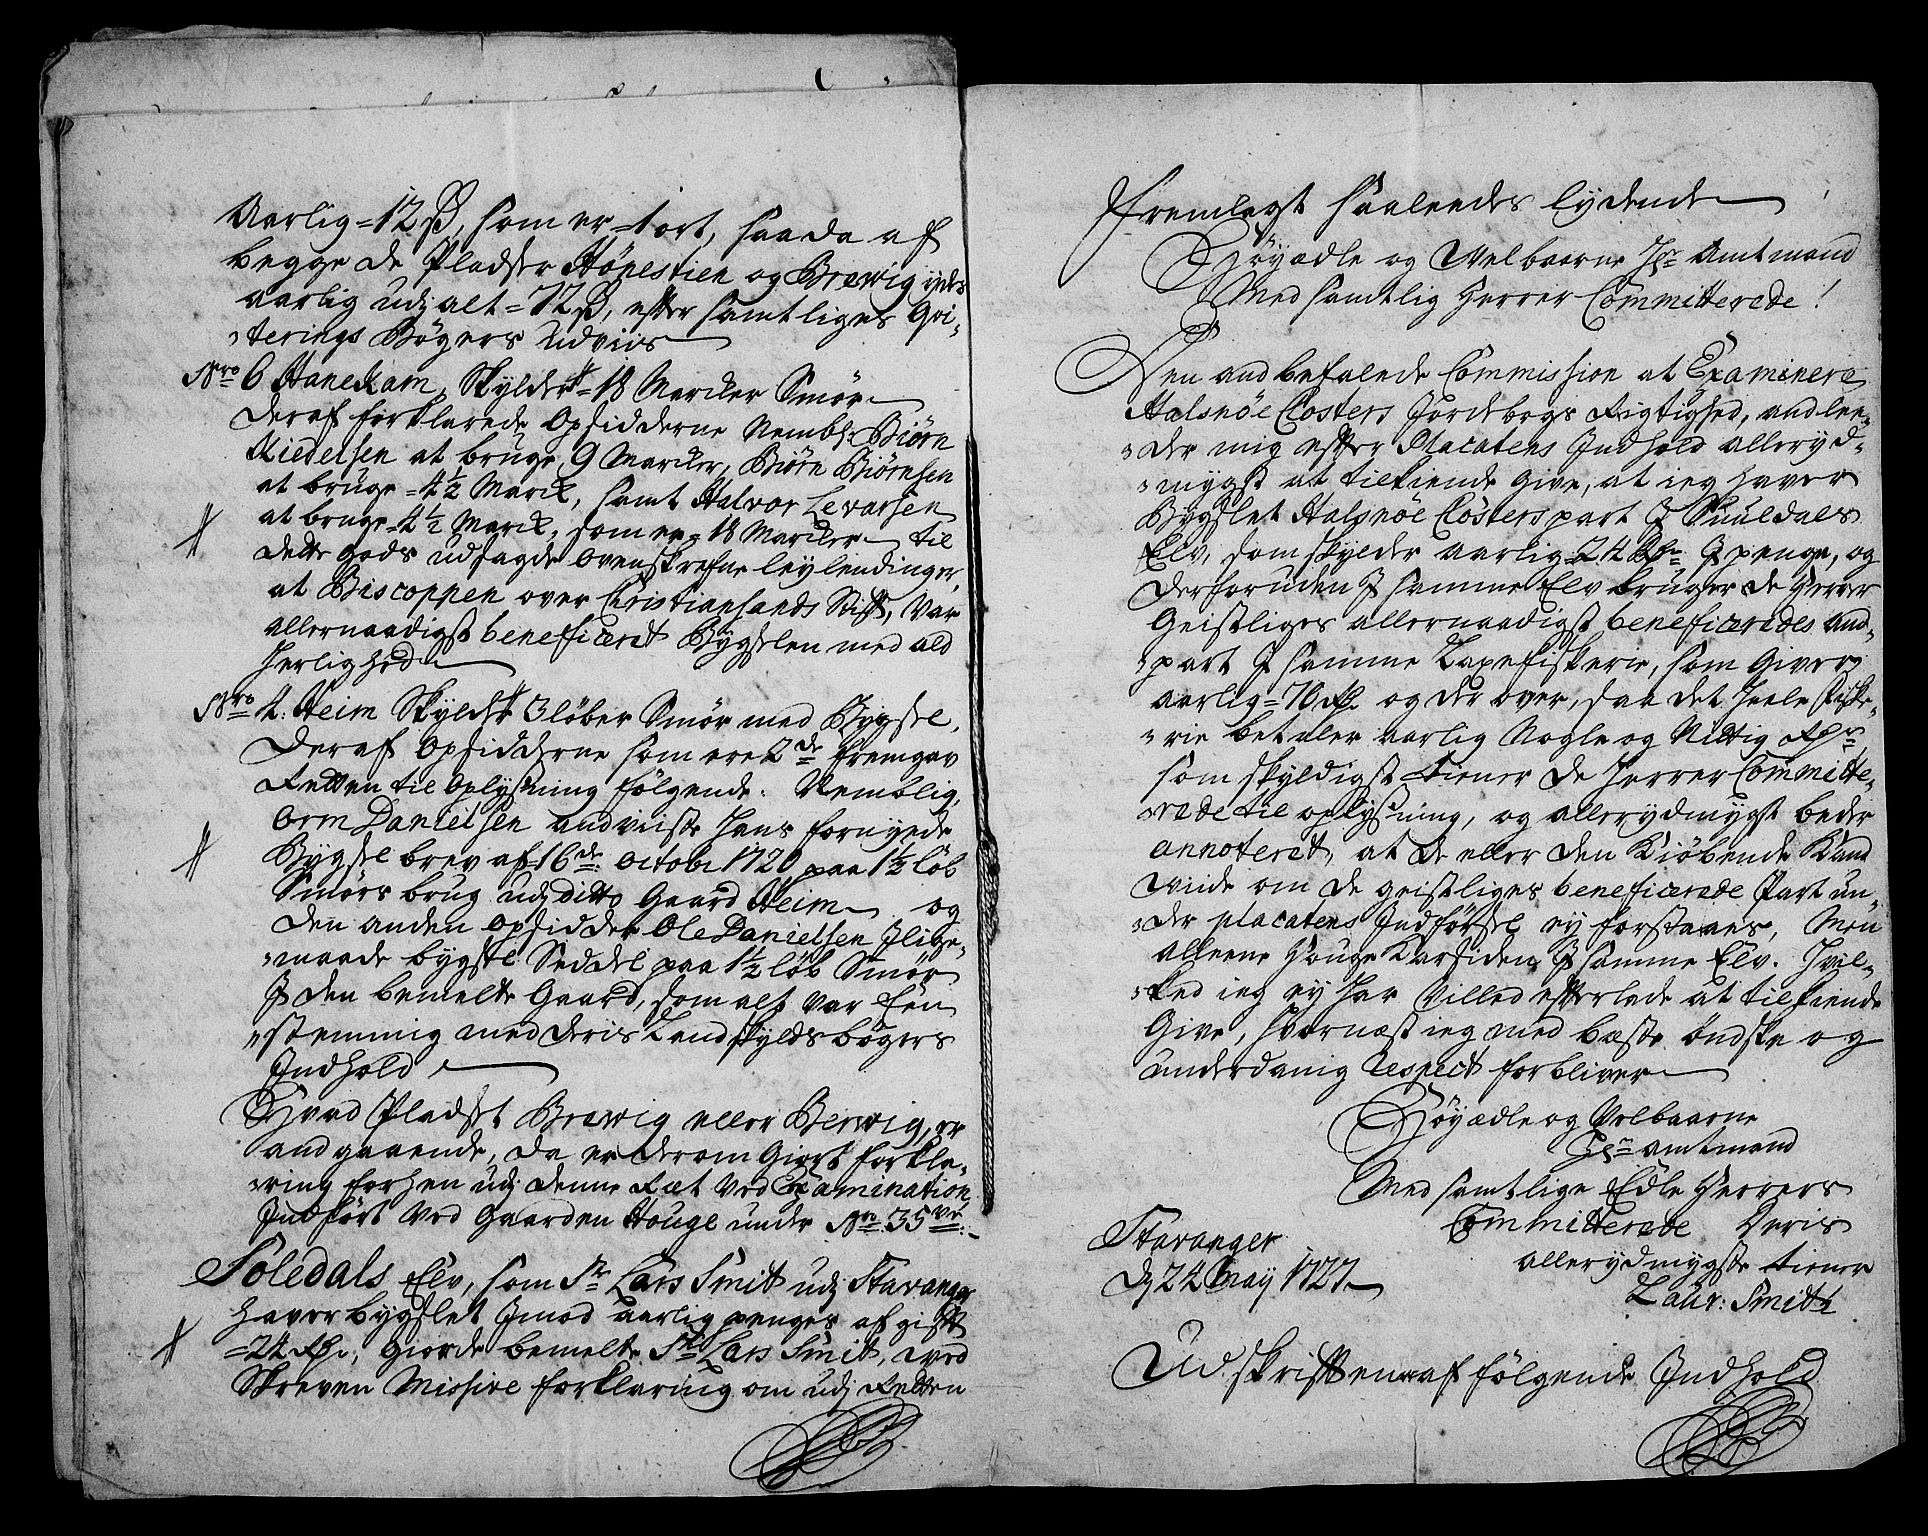 Aarlig = 12 ß, som er = 1 ort, saa da af
begge de Pladser Hönestien og Brewig ydes
aarlig udj alt = 72 ß, efter samtliges Qvi-
terings Bøgers Udviis
Nro 6 Hanekam, Skylder = 18 Marcker Smör
Deraf forklarede Opsidderne Nembl: Biørn
Kieldsen at bruge 9 Marcker, Biørn Biørnsen
at bruge = 4½ Marck, samt Halvor Levarsen
at bruge = 4½ Marck, som er = 18 Marcker til
dette gods udsagde ovenskrefne leylendinger,
at Biscoppen over Christiansands Stift, var
allernaadigst beneficeret Bÿgselen med ald
Herlighed
Nro 4. Heim Skylder 3 løber Smör med Bÿgsel,
Deraf Opsidderne som ere 2de fremgav
Retten til Oplysning følgende: Nemblig,
Orm Danielsen andviiste Hans fornyede
Bÿgsel brev af 16de Octobr 1720 paa 1½ löb
Smørs brug udj ditto Gaard Heim og
den anden Opsidder Ole Danielsen Ilige-
maade bygsel Seddel paa 1½ løb Smør
J den bemelte Gaard, som alt var Een
stemmig med deris Landskylds bøgers
Indhold
Hvad Pladset Brewig eller Berwig, er
andgaaende, da er derom Giort forkla-
ring forhen udj denne Ræt Ved Examination
Indført Ved Gaarden Houge under Nro 35ve:
Soledals Elv, som Sr Lars Smit udj Stavanger
haver bygslet Jmod aarlig penges afgift
= 24 Rdr, giorde bemelte Sr Lars Smit, ved
Skreven Missive forklaring om udj Retten
Fremlagt saaleedes lydende
Höyædle og Velbaarne Hr Amtmand
Med samtlig Herrer Committerede!
Den andbefalede Commission at Examinere
Halsnöe Closters Jordebogs Rigtighed, andlee-
der mig efter Placatens Indhold allerÿd-
mygst at tilkiende give, at ieg haver
Bygslet Halsnöe Closters part J Suuldals
Elv, som skylder aarlig 24 Rdr J penge, og
derforuden J samme Elv bruger de Herrer
Geistliges allernaadigst beneficeredes And-
part J samme Laxefiskerie, som Giver
aarlig = 70 Rdr og der over, saa det Heele Fiske-
rie betaler aarlig Nogle og Nittig Rdr,
som skyldigst tiener de Herrer Committe-
rede til oplysning, og allerydmygst beder
annoteret, at de eller den Kiöbende kand
vide om de geistliges beneficerede Part un-
der placatens Indførsel ey forstaaes, Men
alleene Houge Karsiden J samme Elv. Hvil-
ked ieg ey har Villed efterlade at tilkiende
Give, hvornæst ieg med beste ønske og
underdanig respect forbliver
Höyædle og Velbaarne
Hr amtmand
Med samtlige Edle Herrers
Committerede Deris
allerydmygste tiener
Laur: Smith
Stavanger
d 24 Maÿ 1727
Udskriften af følgende Indhold